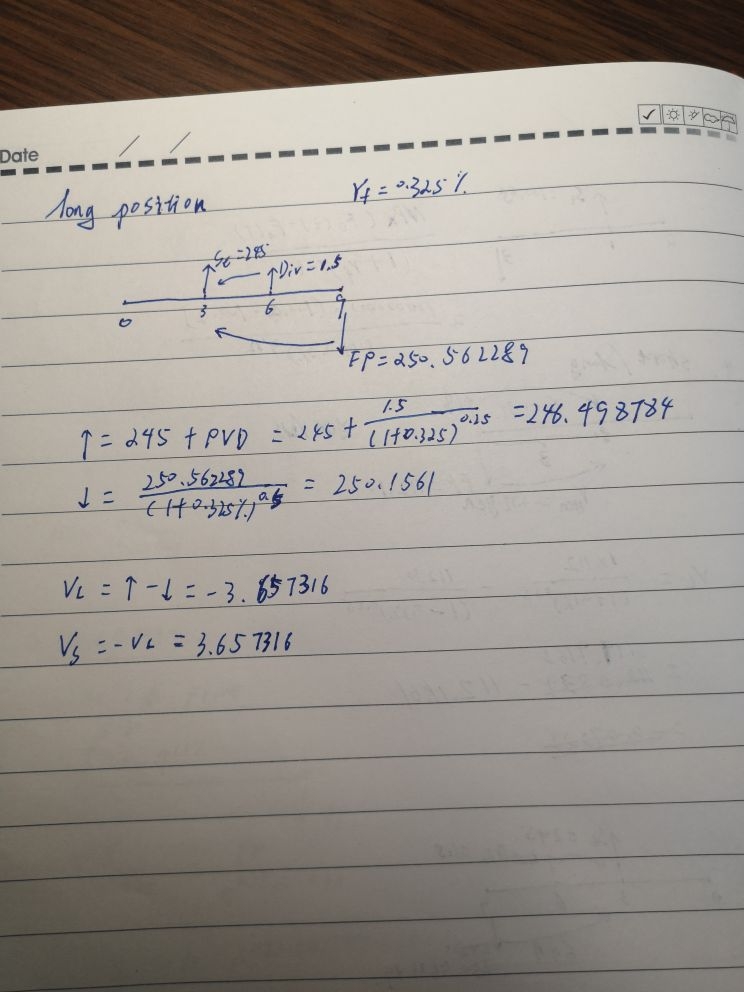 Date / /
long position rf = 0.325%
St = 245
Div = 1.5
0 3 6 9
FP = 250.562289
↑ = 245 + PVD = 245 + 1.5/(1+0.325)^0.25 = 246.498784
↓ = 250.562289/(1+0.325%)^0.5 = 250.1561
VL = ↑ - ↓ = -3.657316
VS = -VL = 3.657316